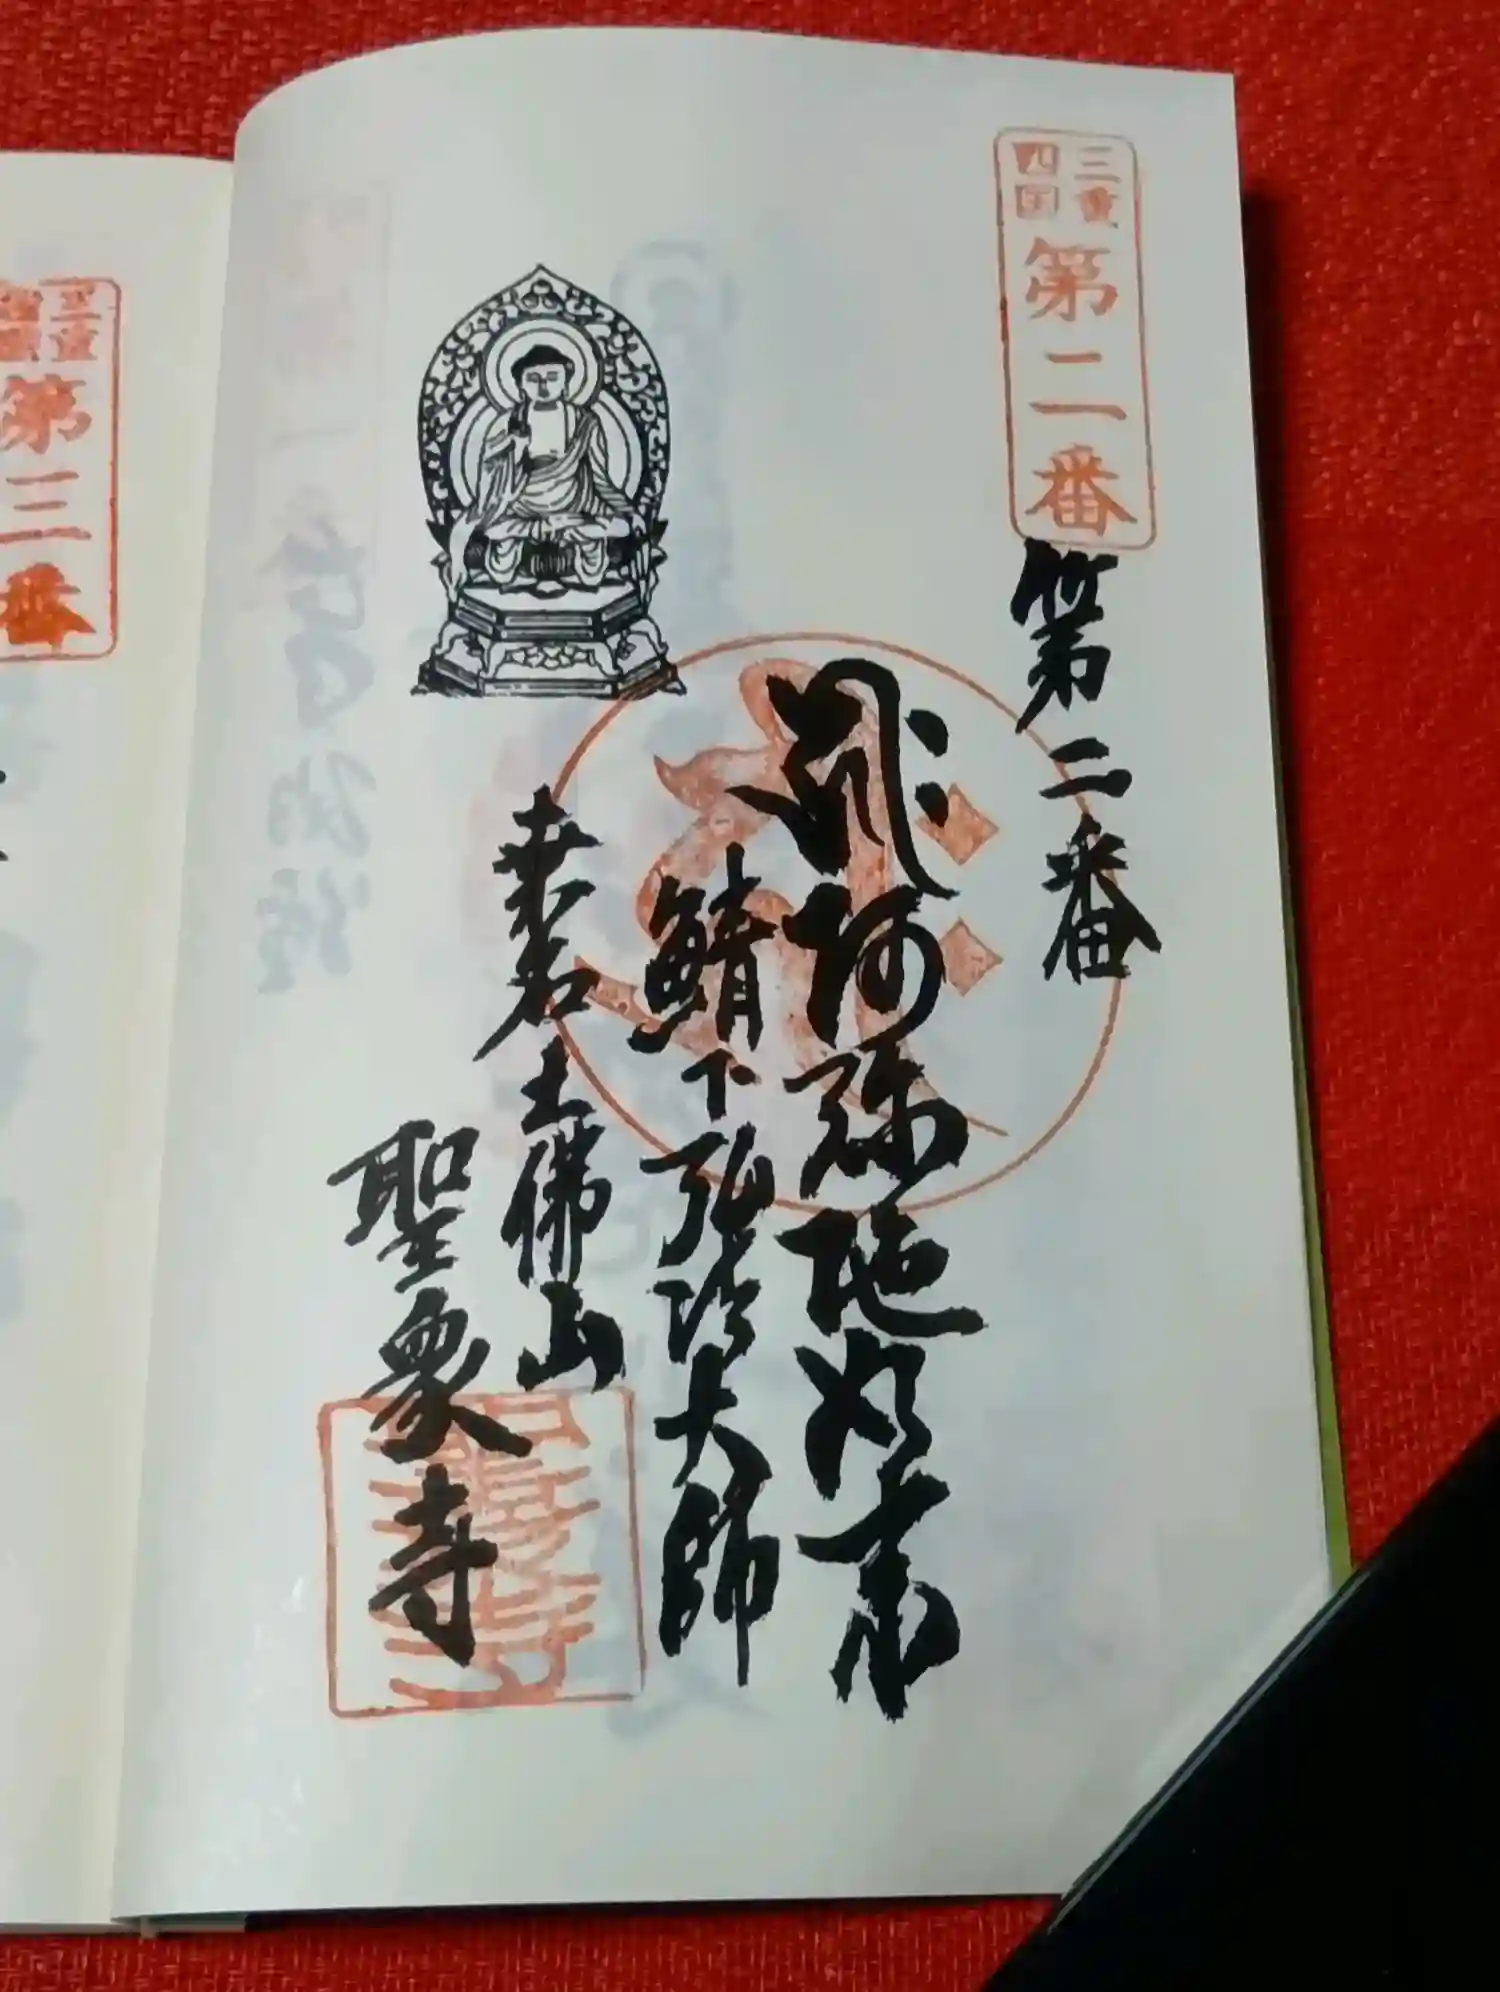 三重
四国
第二番
第二番
阿弥陀如来
鯖下弘法大師
垂石
土佛山
聖衆寺
三重
四国
第三番